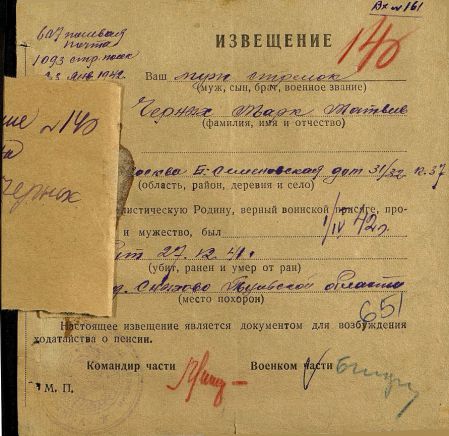 Вх №161
607 полевая
почта
1093 стр. полк
янв. 1942
ИЗВЕЩЕНИЕ
140
Ваш муж стрелок
(муж, сын, брат, военное звание)
Черных Марк
(фамилия, имя и отчество)
№ 140
Черных
Москва Б. Семеновская дом 31/32 к. 37
(область, район, деревня и село)
листическую Родину, верный воинской присяге, про-
и мужество, был
1/IV 42г.
27.12.41г.
(убит, ранен и умер от ран)
д. Тульской области
(место похорон)
651
Настоящее извещение является документом для возбуждения
ходатайства о пенсии.
Командир части Военком части
М. П.